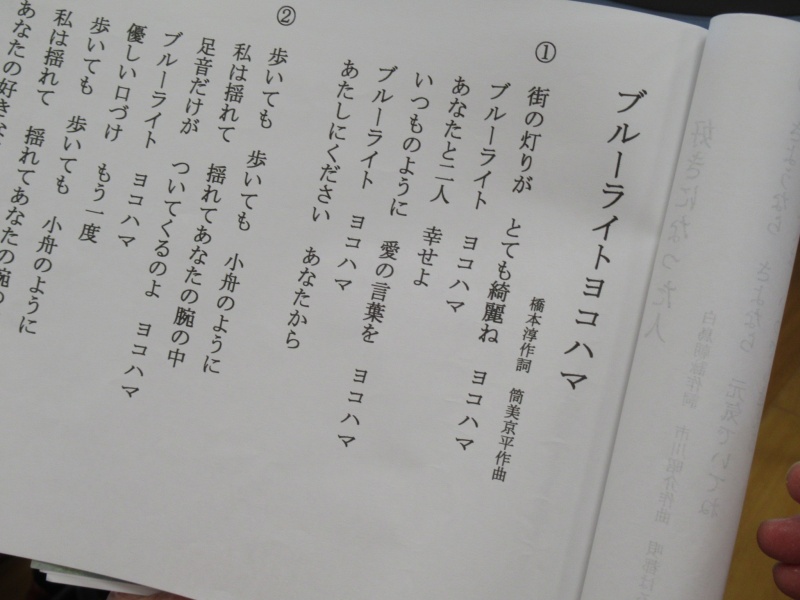 さようなら さよなら 元気でいてね
好きになった人
市川昭介作曲
ブルーライトヨコハマ
橋本淳作詞 筒美京平作曲
①
街の灯りが とても綺麗ね ヨコハマ
ブルーライト ヨコハマ
あなたと二人 幸せよ
いつものように 愛の言葉を ヨコハマ
ブルーライト ヨコハマ
あたしにください あなたから
②
歩いても 歩いても 小舟のように
私は揺れて 揺れてあなたの腕の中
足音だけが ついてくるのよ ヨコハマ
ブルーライト ヨコハマ
優しい口づけ もう一度
歩いても 歩いても 小舟のように
私は揺れて 揺れてあなたの腕の
あなたの好きな